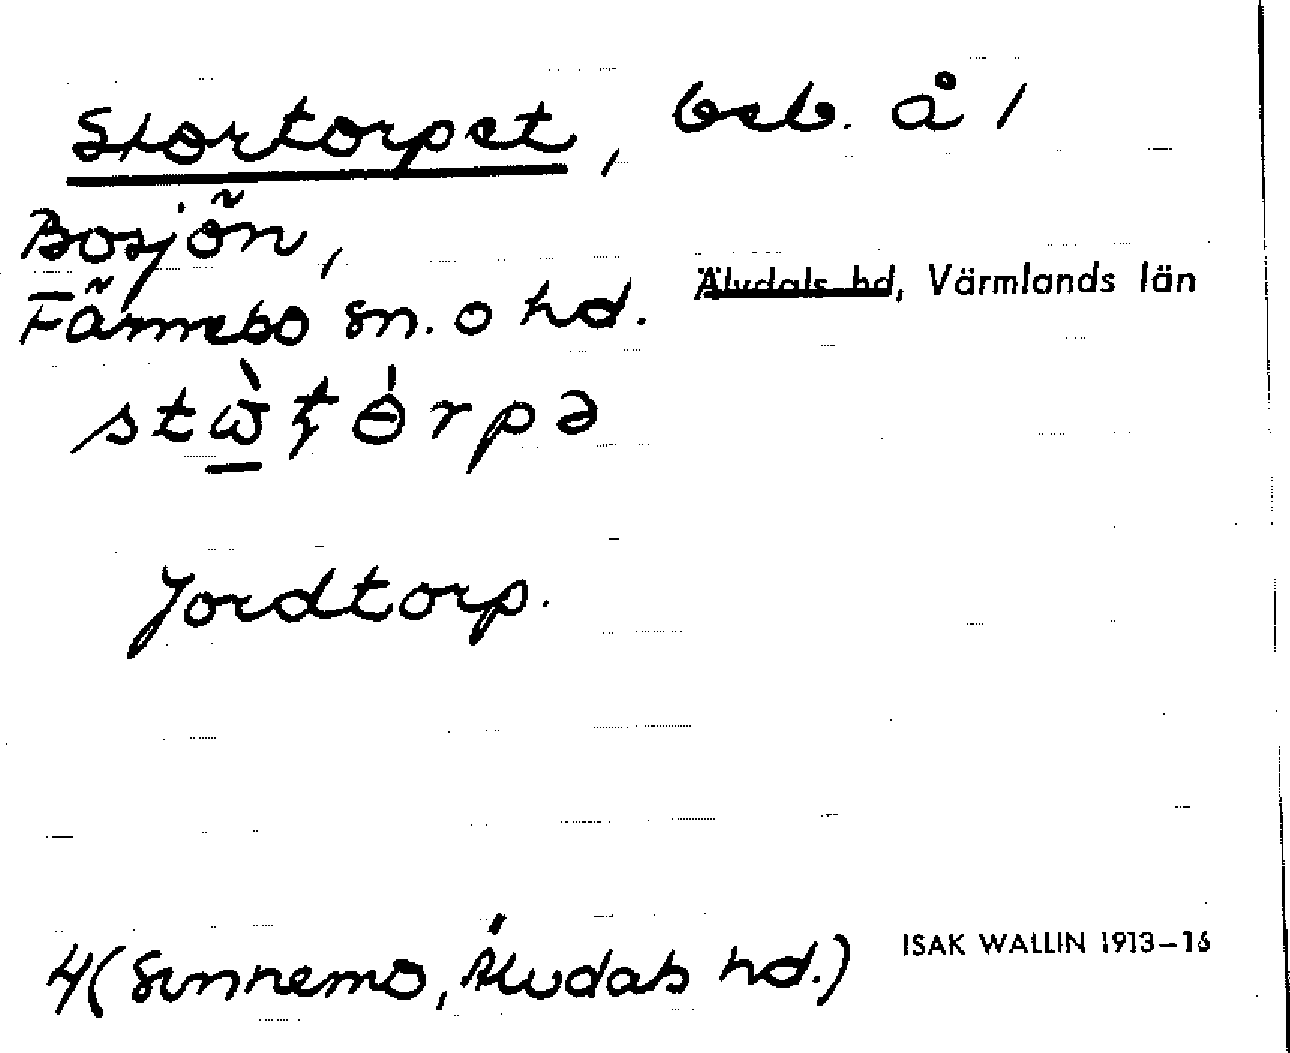 Stortorpet, beb. å /
Bosjön,
Färnebo sn. o hd.
Älvdals hd, Värmlands län
Jordtorp.
4 (Sunnemo, Älvdals hd.)
ISAK WALLIN 1913–16